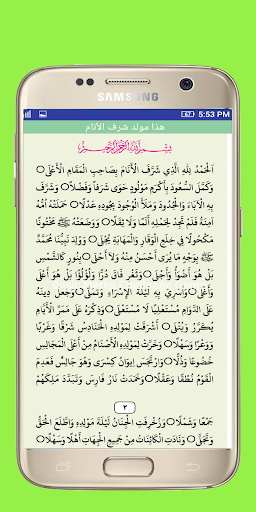 SAMSUNG
5:53 PM
هذا مولد شرف الأنام
بِسْمِ اللَّهِ الرَّحْمَنِ الرَّحِيمِ
اَلْحَمْدُ لِلّٰهِ الَّذِي شَرَّفَ الْأَنَامَ بِصَاحِبِ الْمَقَامِ الْأَعْلَى
وَكَمَّلَ السُّعُودَ بِأَكْرَمِ مَوْلُودٍ حَوَى شَرَفًا وَفَضْلًا وَشَرَّفَ
بِهِ الْآبَاءَ وَالْجُدُودَ وَمَلَأَ الْوُجُودَ بِجُودِهِ عَدْلًا حَمَلَتْهُ أُمُّهُ
آمِنَةُ فَلَمْ تَجِدْ لِحَمْلِهِ أَلَمًا وَلَا ثِقْلًا وَوَضَعَتْهُ مَخْتُونًا
مَكْحُولًا فِي خِلَعِ الْوَقَارِ وَالْمَهَابَةِ يُجْلَى وَوُلِدَ نَبِيُّنَا مُحَمَّدٌ
بِوَجْهٍ مَا يُرَى أَحْسَنُ مِنْهُ وَلَا أَحْلَى بِنُورٍ كَالشَّمْسِ
بَلْ هُوَ أَضْوَأُ وَأَجْلَى وَثَغْرٍ فَاقَ دُرًّا وَلُؤْلُؤًا بَلْ هُوَ أَغْلَى
وَأَعْلَى وَأُسْرِيَ بِهِ لَيْلَةَ الْإِسْرَاءِ وَتَمَلَّى وَجَعَلَ دِينَهُ
عَلَى الدَّوَامِ مُسْتَعْلِيًا لَا مُسْتَعْلَى وَذِكْرَاهُ عَلَى مَمَرِّ الْأَيَّامِ
يُكَرَّرُ وَيُتْلَى أَشْرَقَتْ لِمَوْلِدِهِ الْحَنَادِسُ شَرْقًا وَغَرْبًا
وَوَعْرًا وَسَهْلًا وَخَرَّتْ لِمَوْلِدِهِ الْأَصْنَامُ مِنْ أَعْلَى الْمَجَالِسِ
خُضُوعًا وَذُلًّا وَارْتَجَسَ إِيوَانُ كِسْرَى وَهُوَ جَالِسٌ فَعَدِمَ
الْقَوْمُ نُطْقًا وَعَقْلًا وَخَمَدَتْ نَارُ فَارِسَ وَتَبَدَّدَ مِلْكُهُمْ
٢
جَمْعًا وَشَمْلًا وَزُخْرِفَتِ الْجِنَانُ لَيْلَةَ مَوْلِدِهِ وَاطَّلَعَ الْحَقُّ
وَتَجَلَّى وَنَادَتِ الْكَائِنَاتُ مِنْ جَمِيعِ الْجِهَاتِ أَهْلًا وَسَهْلًا